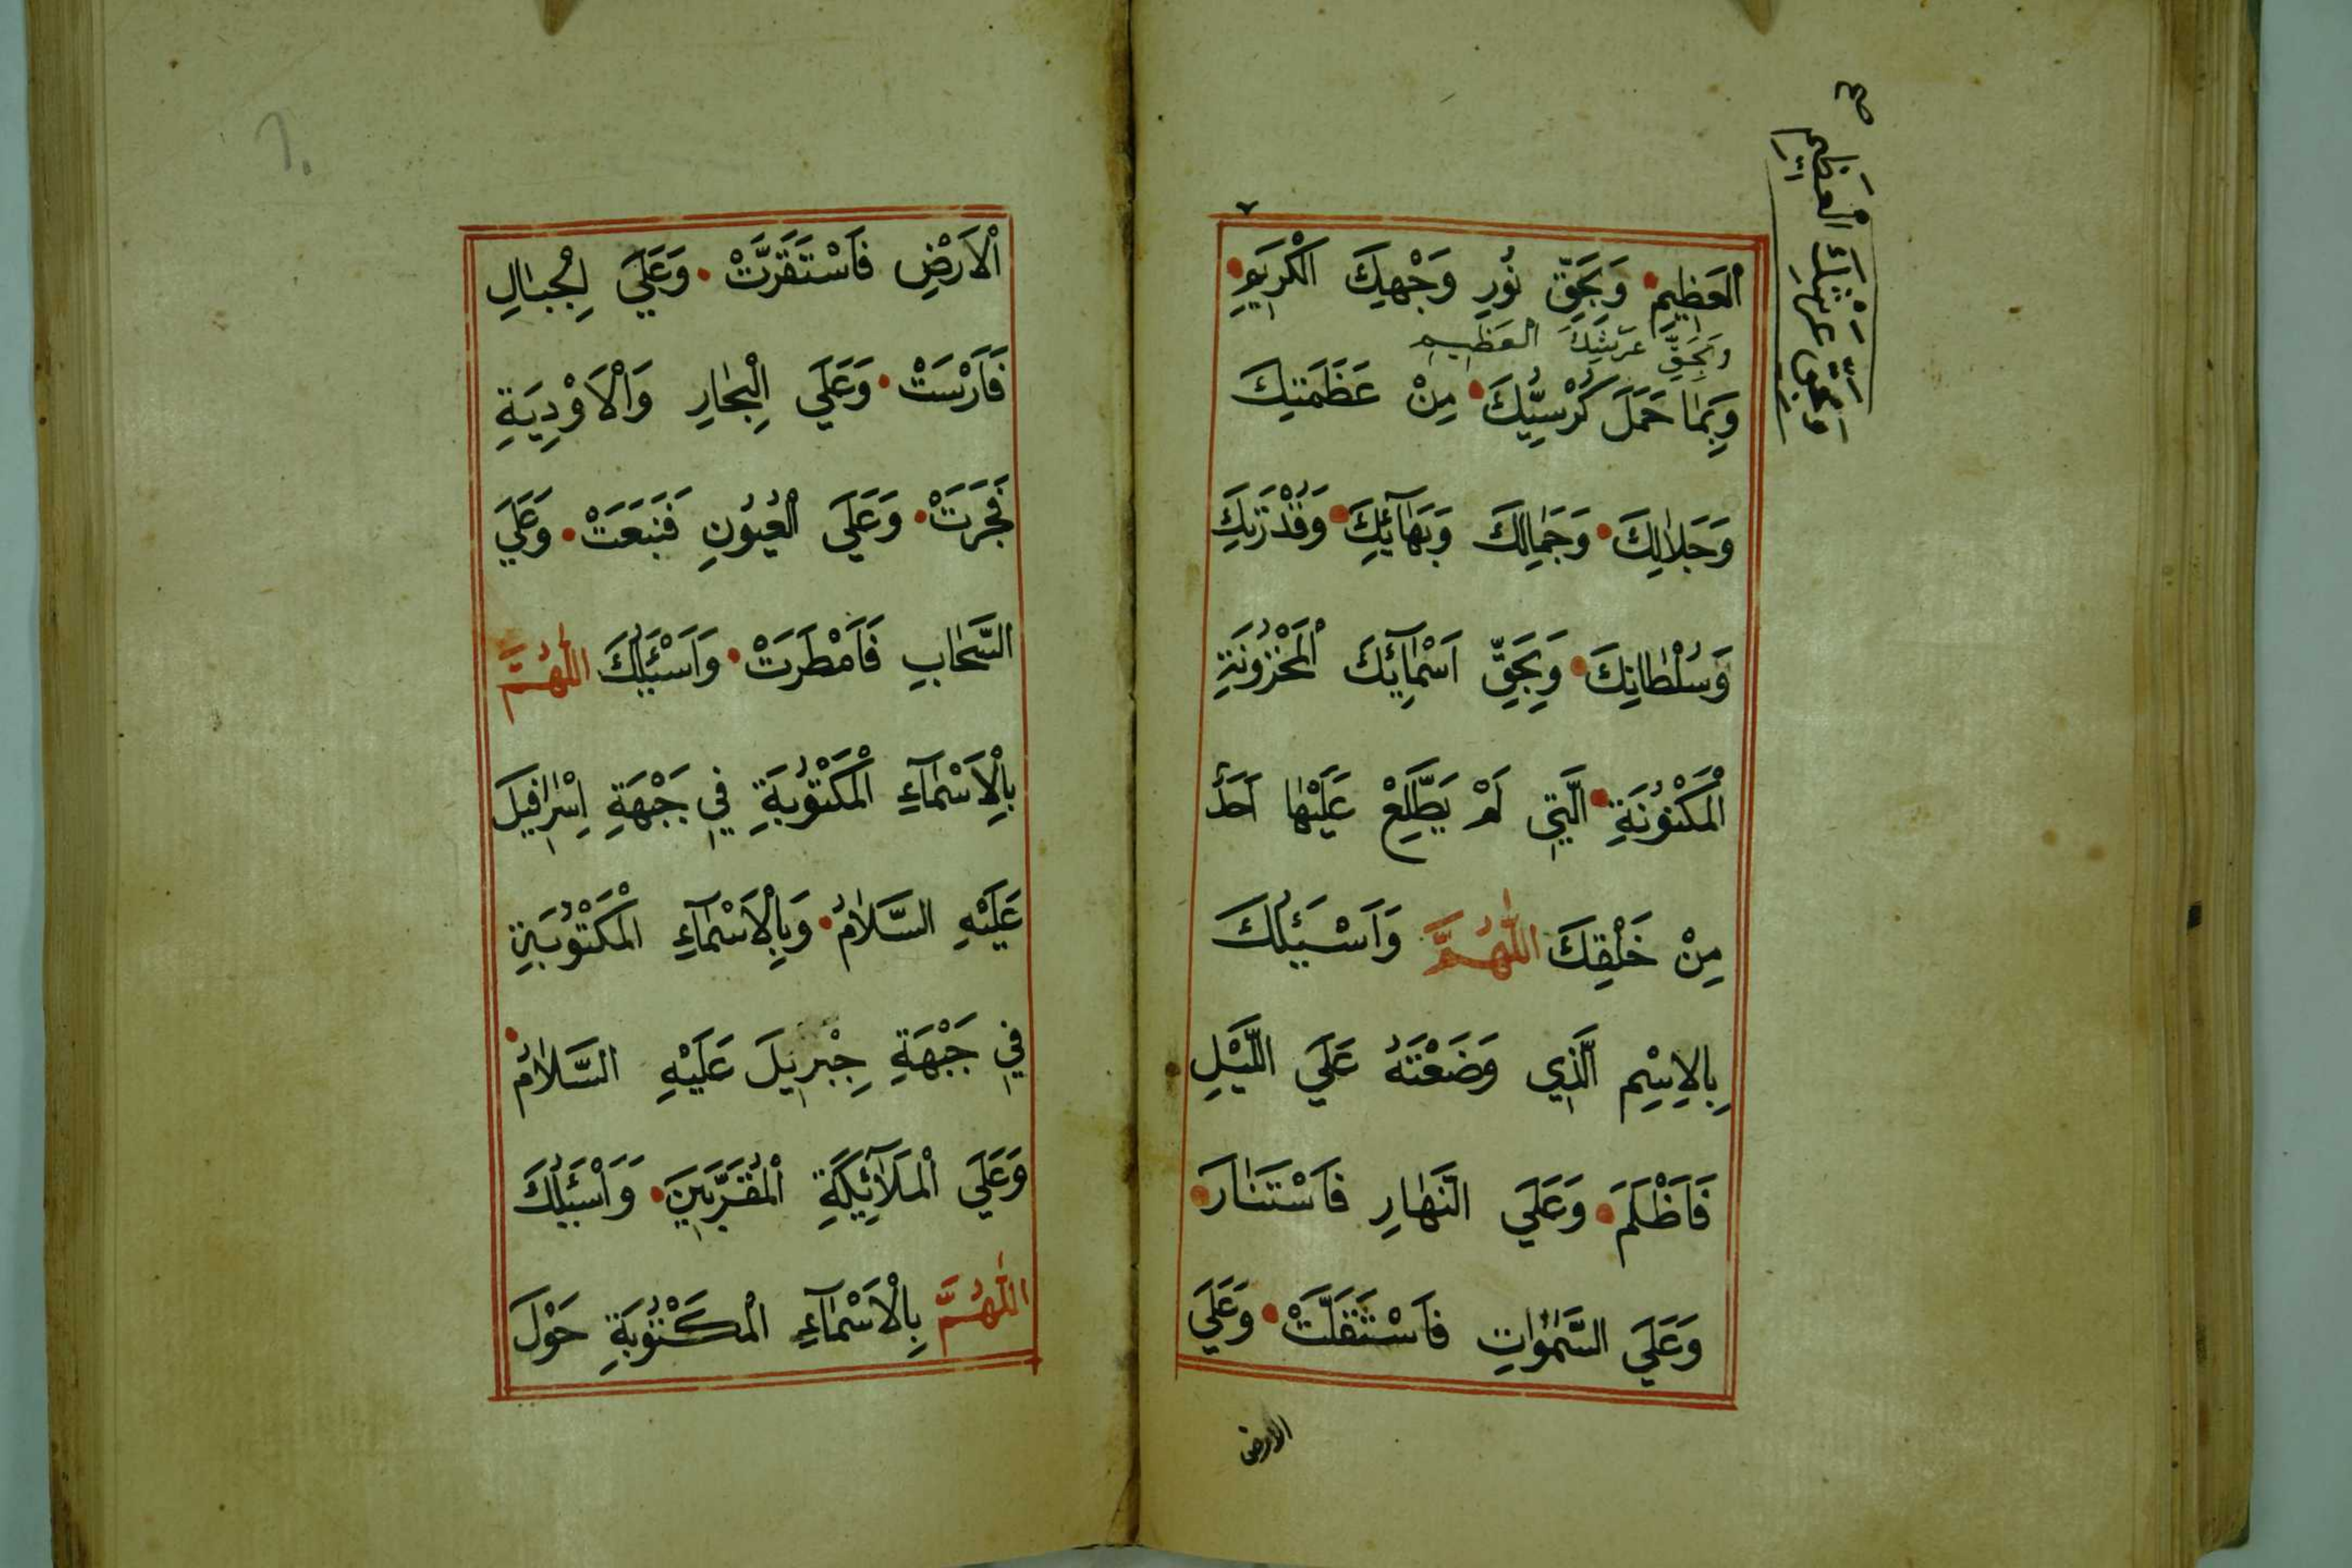 الْعَظِيمِ وَبِحَقِّ نُورِ وَجْهِكَ الْكَرِيمِ
وَبِحَقِّ عَرْشِكَ الْعَظِيمِ
وَبِمَا حَمَلَ كُرْسِيُّكَ مِنْ عَظَمَتِكَ
وَجَلَالِكَ وَجَمَالِكَ وَبَهَآئِكَ وَقُدْرَتِكَ
وَسُلْطَانِكَ وَبِحَقِّ اَسْمَآئِكَ الْمَخْزُونَةِ
الْمَكْنُونَةِ الَّتِي لَمْ يَطَّلِعْ عَلَيْهَا اَحَدٌ
مِنْ خَلْقِكَ اللّٰهُمَّ وَاَسْئَلُكَ
بِالِاسْمِ الَّذِي وَضَعْتَهُ عَلَي اللَّيْلِ
فَاَظْلَمَ وَعَلَي النَّهَارِ فَاسْتَنَارَ
وَعَلَي السَّمٰوَاتِ فَاسْتَقَلَّتْ وَعَلَي
الارض
وَبِحَقِّ عَرْشِكَ الْعَظِيمِ صح
الْاَرْضِ فَاسْتَقَرَّتْ وَعَلَي الْجِبَالِ
فَاَرْسَتْ وَعَلَي الْبِحَارِ وَالْاَوْدِيَةِ
فَجَرَتْ وَعَلَي الْعُيُونِ فَنَبَعَتْ وَعَلَي
السَّحَابِ فَاَمْطَرَتْ وَاَسْئَلُكَ اللّٰهُمَّ
بِالْاَسْمَآءِ الْمَكْتُوبَةِ فِي جَبْهَةِ اِسْرَافِيلَ
عَلَيْهِ السَّلَامُ وَبِالْاَسْمَآءِ الْمَكْتُوبَةِ
فِي جَبْهَةِ جِبْرِيلَ عَلَيْهِ السَّلَامُ
وَعَلَي الْمَلَآئِكَةِ الْمُقَرَّبِينَ وَاَسْئَلُكَ
اللّٰهُمَّ بِالْاَسْمَآءِ الْمَكْتُوبَةِ حَوْلَ